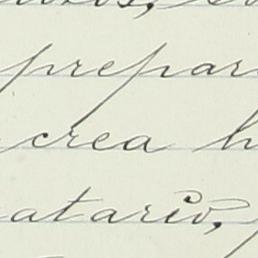 prepar
crea h
atario,